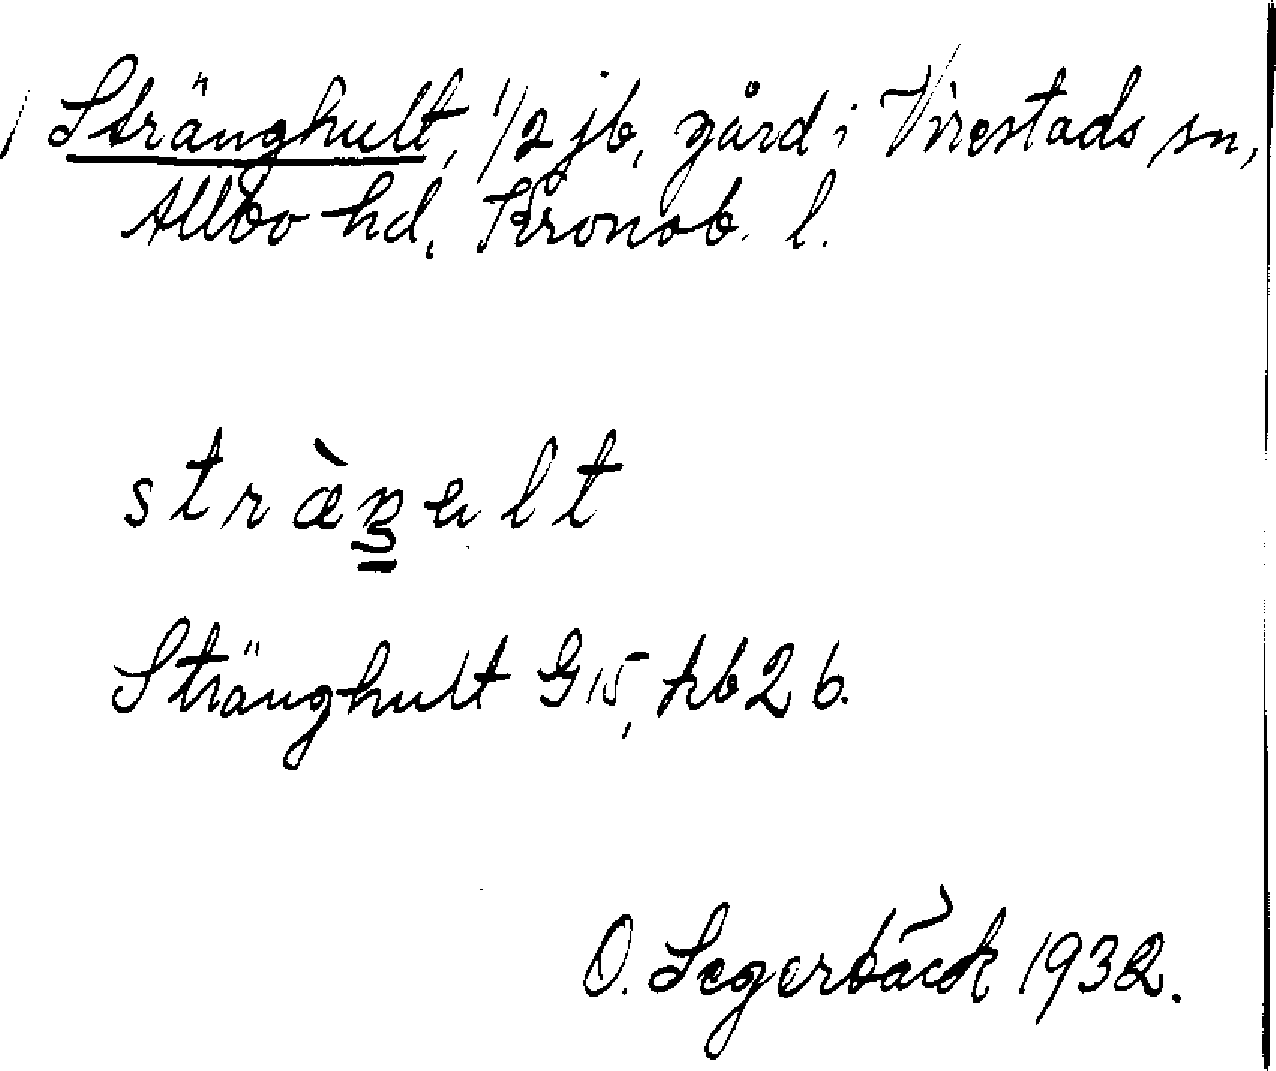 Stränghult, 1/2 jb, gård i Virestads sn,
Allbo hd, Kronob. l.
Stränghult G 15, kb 2 b.
O. Segerbäck 1932.